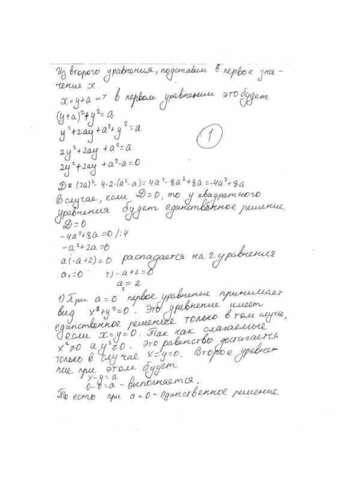 Из второго уравнения, подставим в первое зна-
чение x
x=y+a → в первом уравнении это будет
(y+a)²+y²=a
y²+2ay+a²+y²=a
①
2y²+2ay+a²=a
2y²+2ay+a²-a=0
D=(2a)²-4·2·(a²-a)=4a²-8a²+8a=-4a²+8a
В случае, если D=0, то у квадратного
уравнения будет единственное решение
D=0
-4a²+8a=0/:4
-a²+2a=0
a(-a+2)=0 распадается на 2 уравнения
a₁=0 2)-a+2=0
a₂=2
1) При a=0 первое уравнение принимает
вид x²+y²=0. Это уравнение имеет
единственное решение только в том случае,
если x=y=0. Так как слагаемые
x²≥0 а y²≥0. Это равенство достигается
только в случае x=y=0. Второе уравне-
ние при этом будет
x-y=a
0-0=a - выполняется.
То есть при a=0 - единственное решение